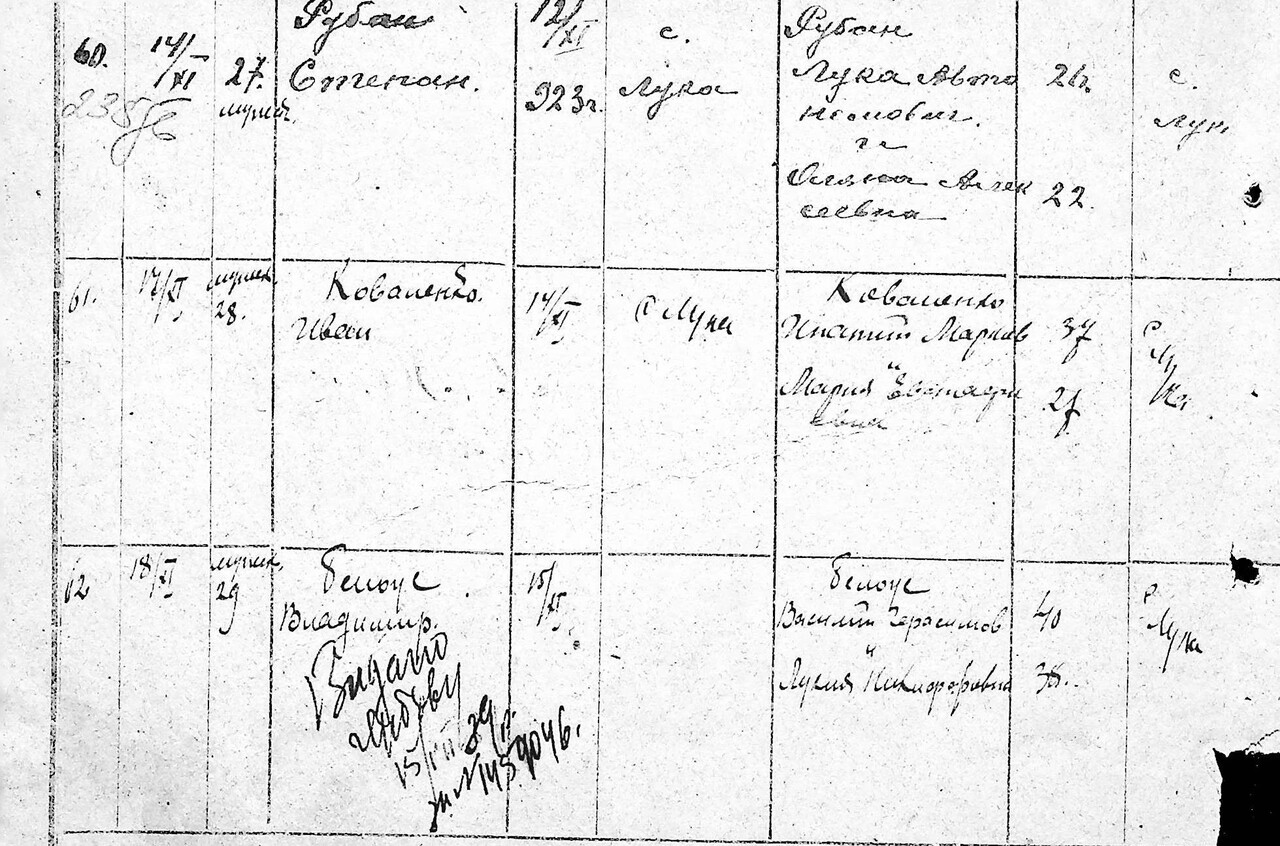 60.
14/XI
27.
мужск.
Рубан
Степан.
12/XI
923г.
с.
Лука
Рубан
Лука Авто
номович.
и
Алек
сеевна
26г.
22.
с.
Лук
61.
17/XI
мужск.
28.
Коваленко.
Иван
14/XI
с Лука
Коваленко
Ипатий Марков
и
Мария Евстафи
евна
37
27.
с
Лука
62
18/XI
мужск.
29
Белоус
Владимир.
Видано
15/XI
Белоус
Василий Герасимов
и
Лукия Никифоровна
40
38.
с
Лука